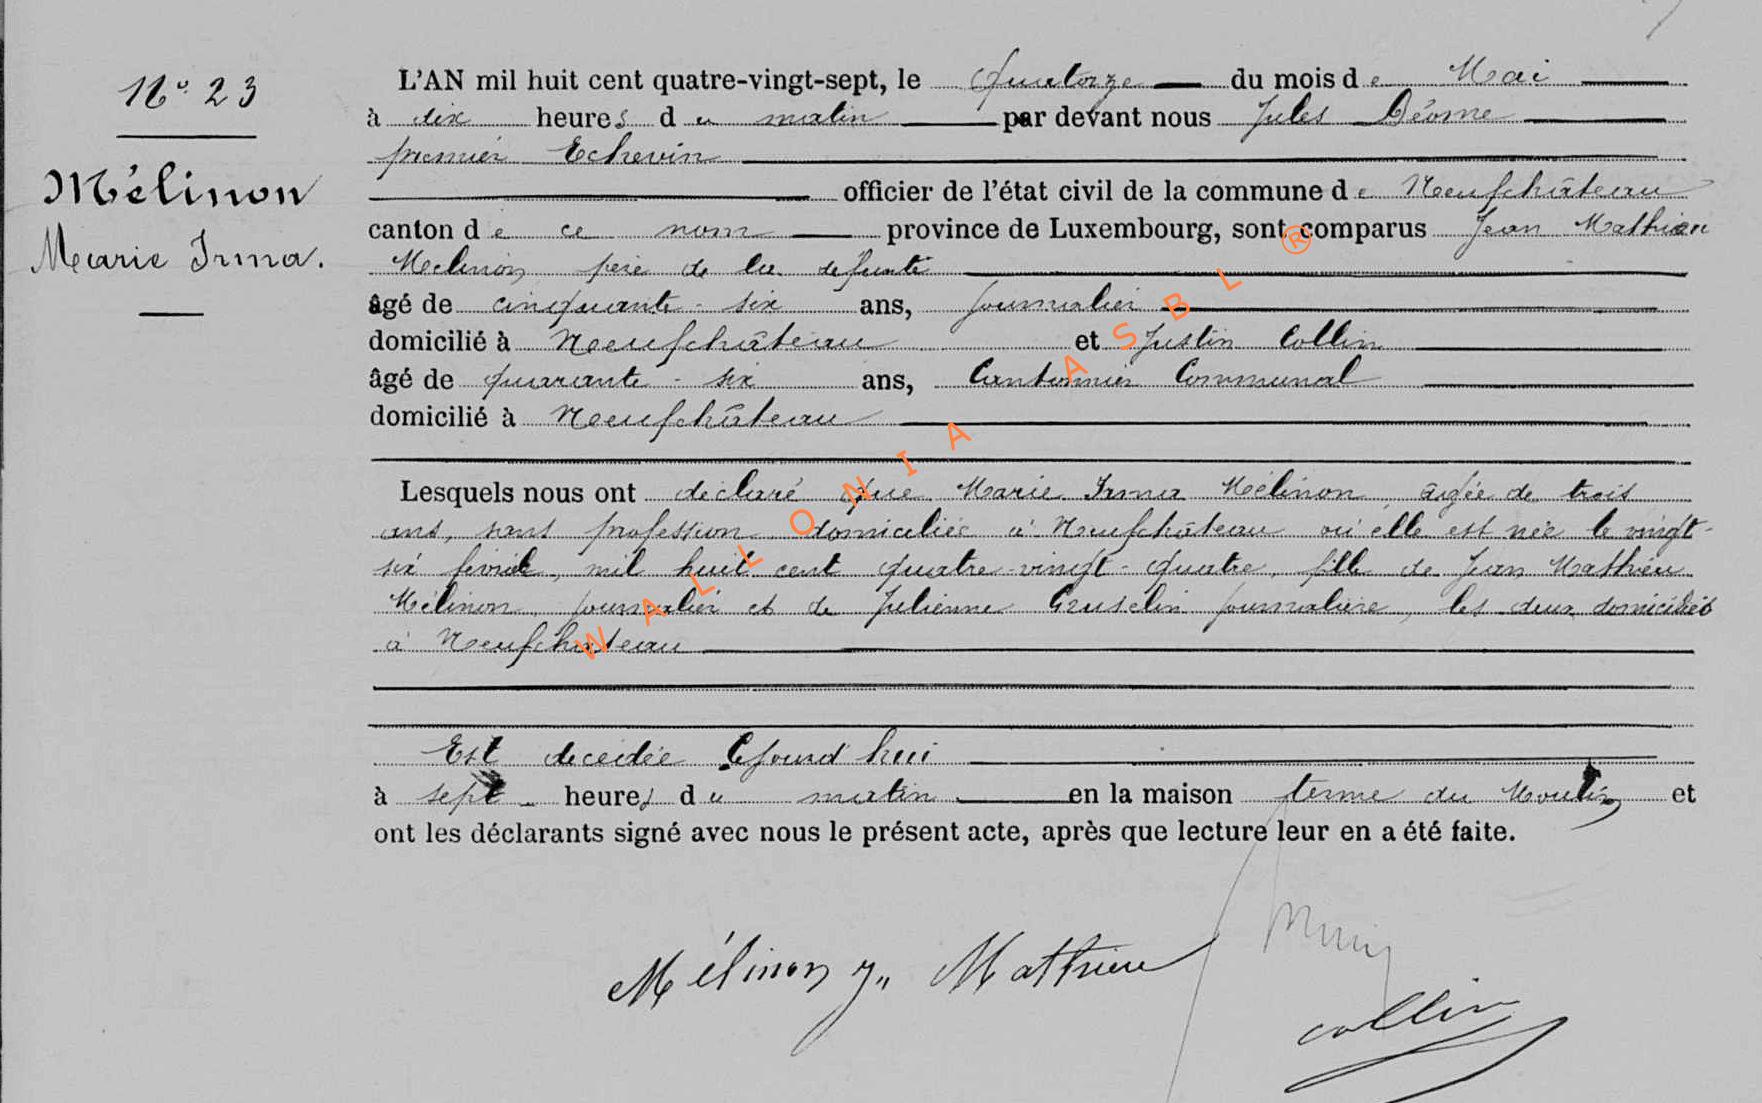 N° 23
Mélinon
Marie Irma.
L'AN mil huit cent quatre-vingt-sept, le Quatorze du mois de Mai
à dix heures du matin par devant nous Jules Déome
premier Echevin
officier de l'état civil de la commune de Neufchâteau
canton de ce nom province de Luxembourg, sont comparus Jean Mathieu
Mélinon, père de la défunte
âgé de cinquante-six ans, journalier
domicilié à Neufchâteau et Justin Collin
âgé de quarante-six ans, Cantonnier Communal
domicilié à Neufchâteau
Lesquels nous ont déclaré que Marie Irma Mélinon, âgée de trois
ans, sans profession domiciliée à Neufchâteau où elle est née le vingt-
six février, mil huit cent quatre-vingt-quatre, fille de Jean Mathieu
Mélinon, journalier et de Julienne Gruselin journalière, les deux domiciliés
à Neufchateau
Est decedée cejourd'hui
à sept heures du matin en la maison ferme du Moulin et
ont les déclarants signé avec nous le présent acte, après que lecture leur en a été faite.
Mélinon J,, Mathieu
collin
WALLONIA ASBL ®